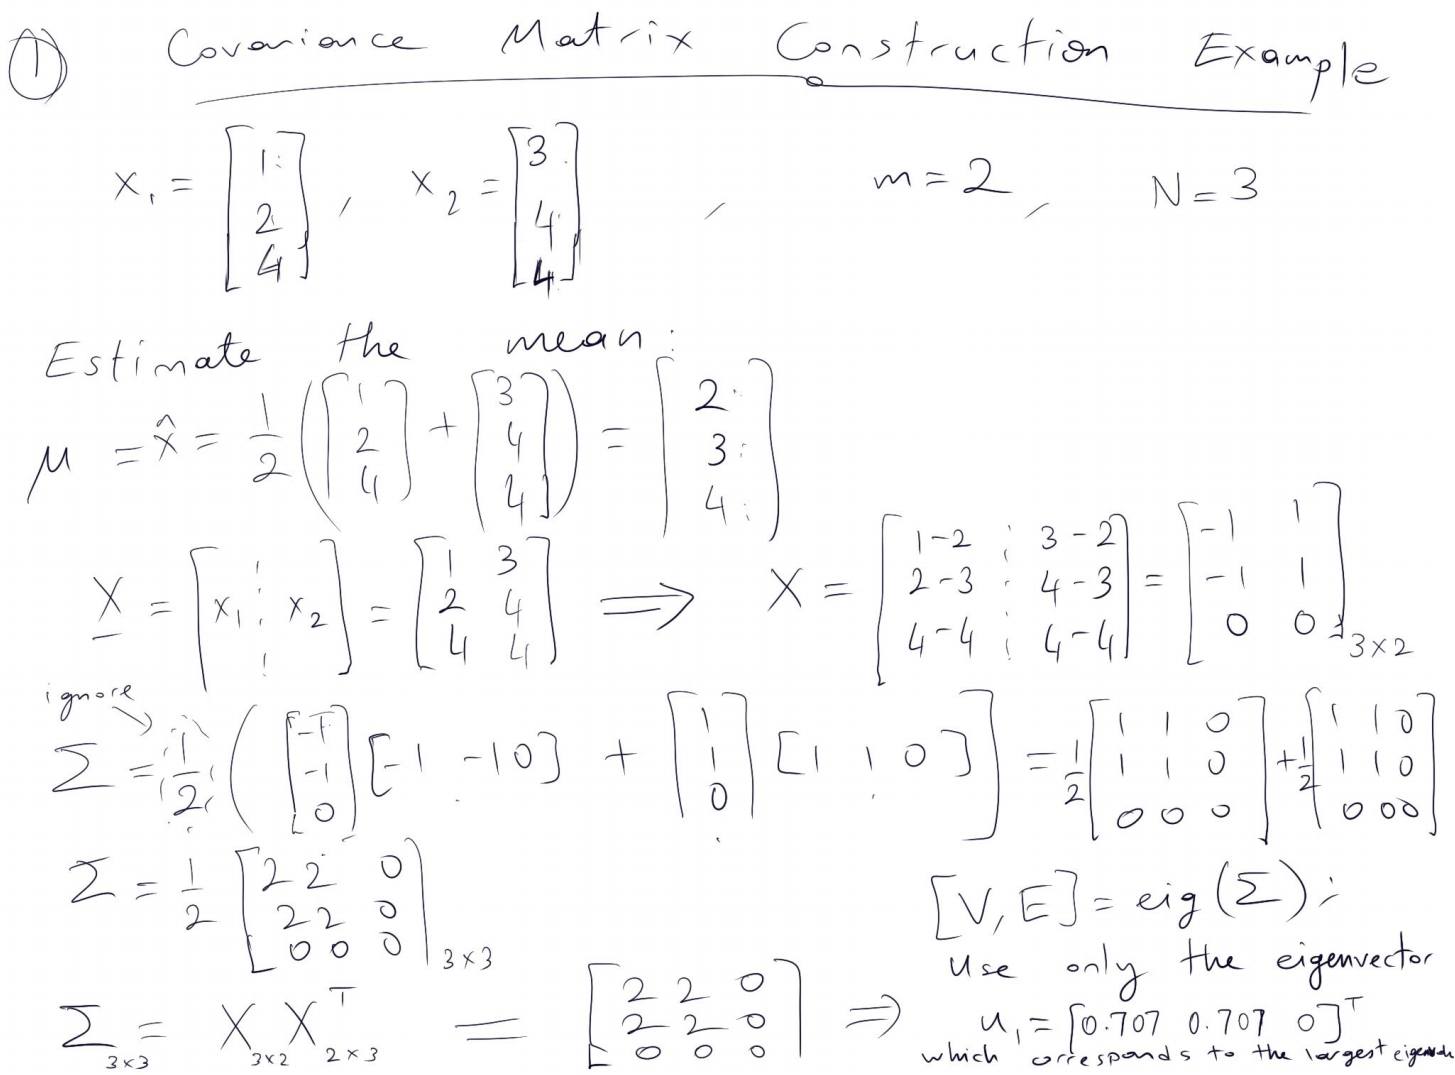 ① Covariance Matrix Construction Example
x₁ = [1 2 4], x₂ = [3 4 4], m = 2, N = 3
Estimate the mean:
μ = x̂ = 1/2 ([1 2 4] + [3 4 4]) = [2 3 4]
X = [x₁ ⋮ x₂] = [1 3; 2 4; 4 4] ⟹ X = [1-2 ⋮ 3-2; 2-3 ⋮ 4-3; 4-4 ⋮ 4-4] = [-1 1; -1 1; 0 0] 3×2
ignore
Σ = 1/2 ([-1; -1; 0] [-1 -1 0] + [1; 1; 0] [1 1 0]] = 1/2 [1 1 0; 1 1 0; 0 0 0] + 1/2 [1 1 0; 1 1 0; 0 0 0]
Σ = 1/2 [2 2 0; 2 2 0; 0 0 0] 3×3
[V, E] = eig(Σ);
Σ 3×3 = X 3×2 X^T 2×3 = [2 2 0; 2 2 0; 0 0 0] ⇒
Use only the eigenvector
u₁ = [0.707 0.707 0]^T
which corresponds to the largest